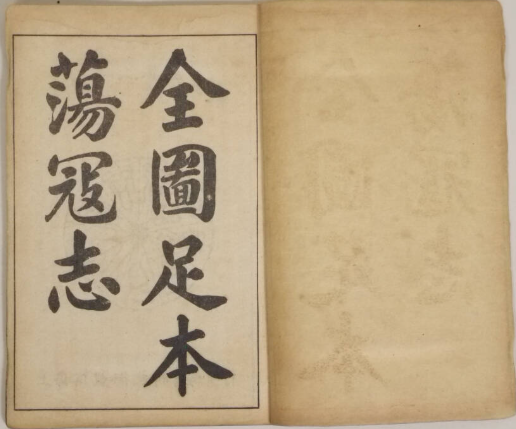 全圖足本
蕩寇志